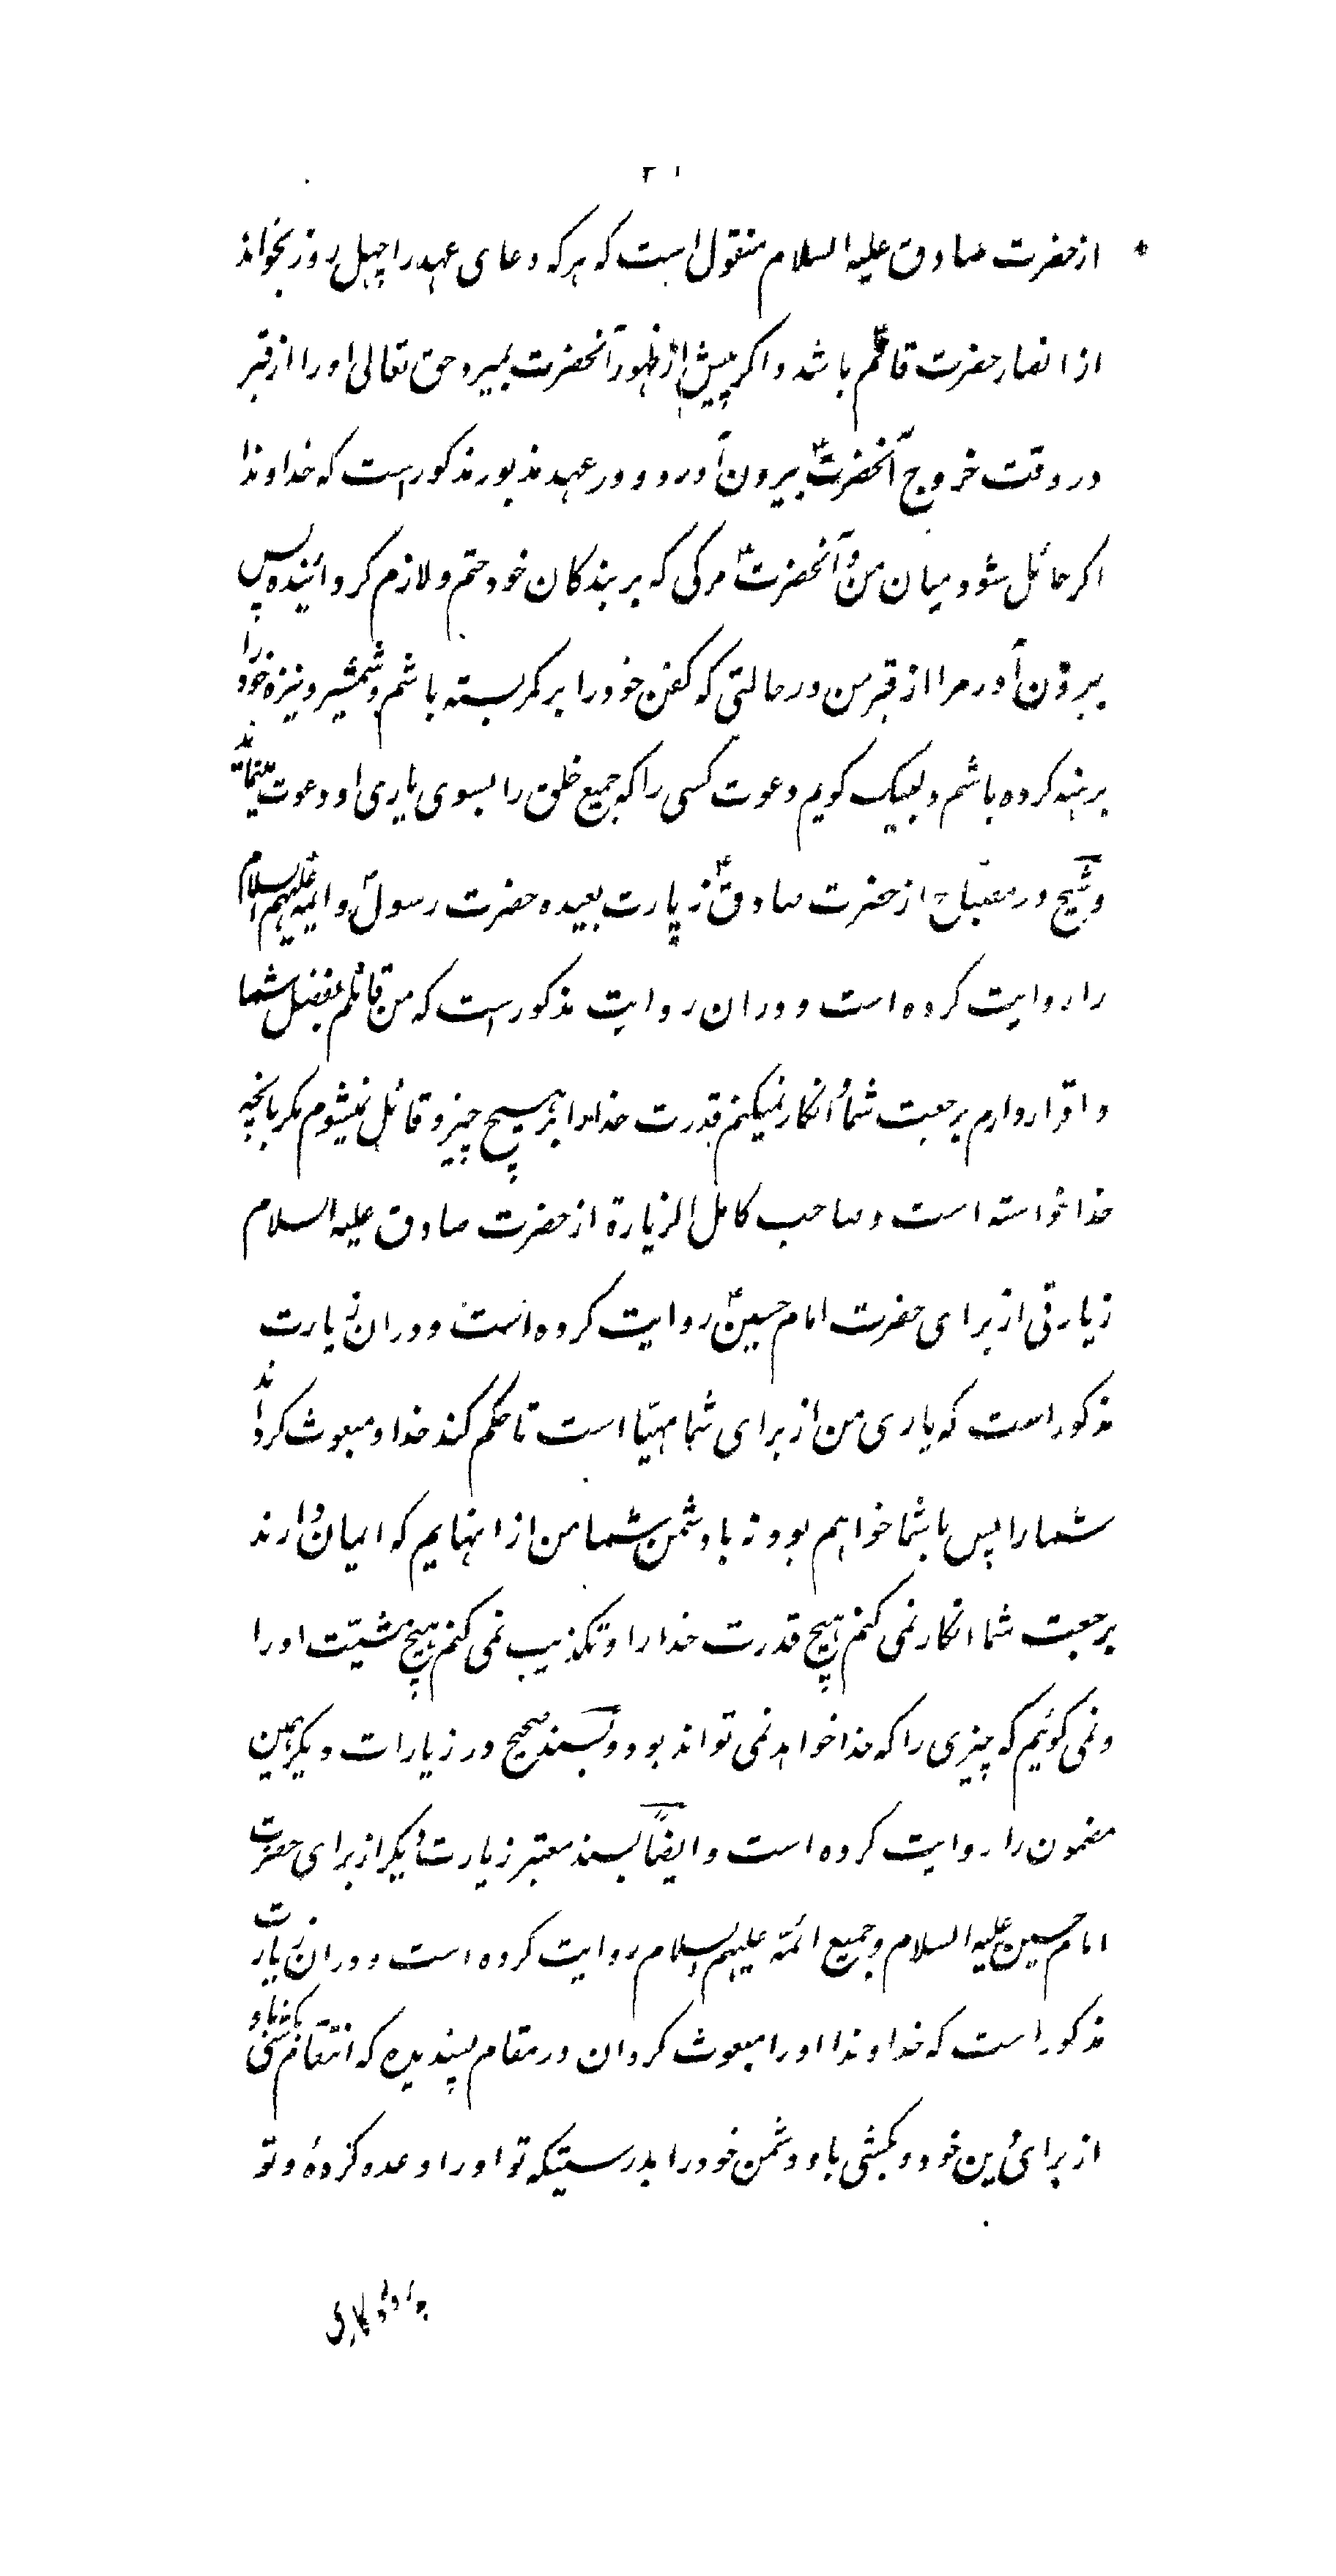 ۲۱
از حضرت صادق علیه السلام منقول است که هر که دعای عهد را چهل روز بخواند
از انصار حضرت قائم باشد و اکر پیش از ظهور آنحضرت بمیرد حق تعالی او را از قبر
در وقت خروج آنحضرت بیرون آورد و در عهد مذبور مذکور است که خداوندا
اکر حائل شود میان من و آنحضرت مرکی که بر بندکان خود حتم و لازم کردانیده پس
بیرون آور مرا از قبر من در حالتی که کفن خود را بر کمر بسته باشم و شمشیر و نیزه خود را
برهنه کرده باشم و لبیک کویم دعوت کسی را که جمیع خلق را بسوی یاری او دعوت مینماید
و شیخ در مصباح از حضرت صادق ع زیارت بعیده حضرت رسول و ائمه علیهم السلام
را روایت کرده است و در ان روایت مذکور است که من قائلم بفضل شما
و اقرار دارم برجعت شما و انکار نمیکنم قدرت خدا را بر هیچ چیز و قائل نمیشوم مکر بانچه
خدا خواسته است و صاحب کامل الزیارة از حضرت صادق علیه السلام
زیارتی از برای حضرت امام حسین ع روایت کرده است و در ان زیارت
مذکور است که یاری من از برای شما مهیّا است تا حکم کند خدا و مبعوث کرداند
شما را پس با شما خواهم بود نه با دشمن شما من از انهایم که ایمان دارند
برجعت شما انکار نمی کنم هیچ قدرت خدا را و تکذیب نمی کنم هیچ مشیّت او را
و نمی کوئیم که چیزی را که خدا خواهد نمی تواند بود و بسند صحیح در زیارات دیکر همین
مضمون را روایت کرده است و ایضاً بسند معتبر زیارت دیکر از برای حضرت
امام حسین علیه السلام و جمیع ائمّه علیهم السلام روایت کرده است و در ان زیارت
مذکور است که خداوندا او را مبعوث کردان در مقام پسندیده که انتقام بکشی باو
از برای دین خود و بکشی باو دشمن خود را بدرستیکه تو او را وعده کرده و تو